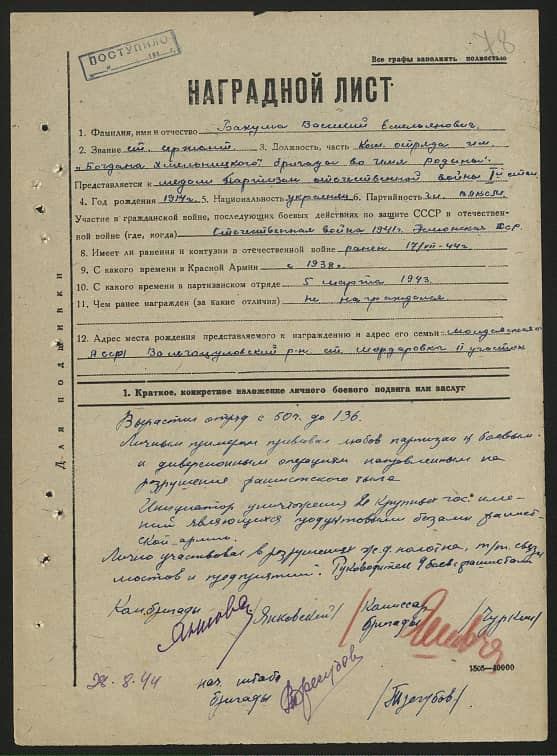 78
ПОСТУПИЛО
Все графы заполнять полностью
НАГРАДНОЙ ЛИСТ
1. Фамилия, имя и отчество Бакума Василий Емельянович
2. Звание ст. сержант 3. Должность, часть Ком. отряда им.
"Богдана Хмельницкого" бригады "во имя Родины"
Представляется к медали Партизан отечественной войны I й степ.
4. Год рождения 1914 г. 5. Национальность украинец 6. Партийность чл. ВЛКСМ
Участие в гражданской войне, последующих боевых действиях по защите СССР и отечествен-
ной войне (где, когда) Отечественная война 1941 г. Эстонская ССР.
8. Имеет ли ранения и контузии в отечественной войне ранен 44 г.
9. С какого времени в Красной Армии с 1938 г.
10. С какого времени в партизанском отряде 5 марта 1943
11. Чем ранее награжден (за какие отличия) не награждался
12. Адрес места рождения представляемого к награждению и адрес его семьи Молдавская
АССР р-н ст. Мардаровка II участок
Для подшивки
1. Краткое, конкретное изложение личного боевого подвига или заслуг
Вырастил отряд с 50 ч. до 136.
Личным примером прививал любовь партизан к боевым
и диверсионным операциям направленным на
разрушения фашистского тыла
Инициатор уничтожения крупных гос. име-
ний являющихся продуктовыми базами фашист-
ской армии.
Лично участвовал в разрушении ж.д. полотна, связи
мостов и предприятий. Руководител 9 боев с фашистами
Ком. бригады /Янковский/ Комиссар
бригады /Чуркин/
1505—40000
28.8.44 нач. штаба
бригады /Трегубов/